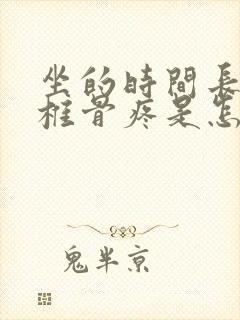 坐的時間長
椎骨疼是怎
鬼半京